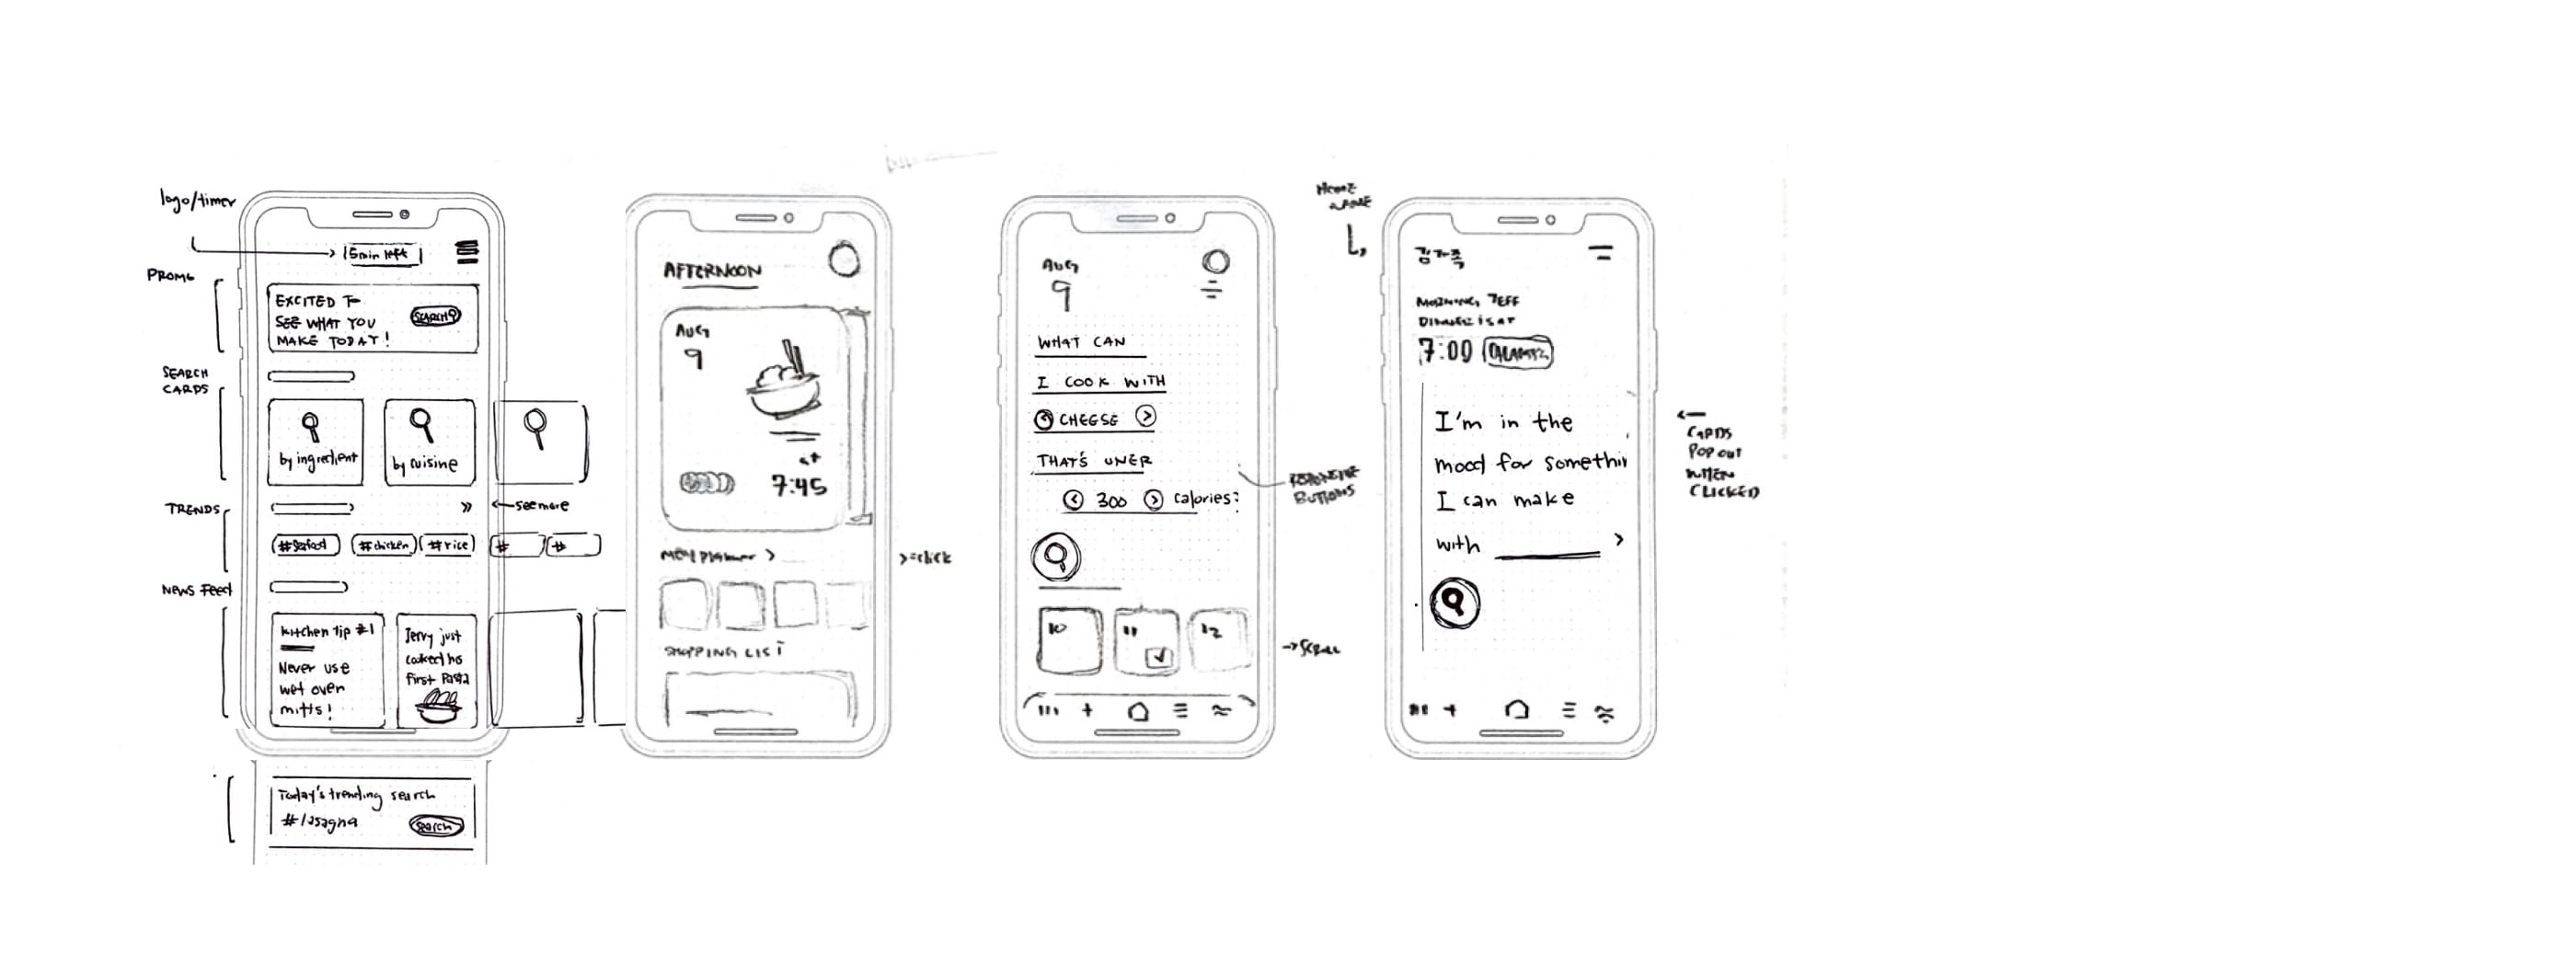 logo/timer
15min left
PROMO
EXCITED TO
SEE WHAT YOU
MAKE TODAY!
SEARCH
SEARCH
CARDS
by ingredient
by cuisine
TRENDS
»
see more
#Seafood
#chicken
#rice
#
#
NEWS Feed
kitchen tip #1
Never use
wet oven
mitts!
Jerry just
cooked his
first Pasta
Today's trending search
#lasagna
Search
AFTERNOON
AUG
9
at
7:45
MEAL Planner >
>=click
SHOPPING LIST
AUG
9
WHAT CAN
I COOK WITH
< CHEESE >
THAT'S UNER
< 300 > calories?
RESPONSIVE
BUTTONS
10
11
12
→ SCROLL
+
HOME
NAME
MORNING, JEFF
DINNER IS AT
7:00
I'm in the
mood for somethin
I can make
with >
+
CARDS
POP OUT
WHEN
CLICKED